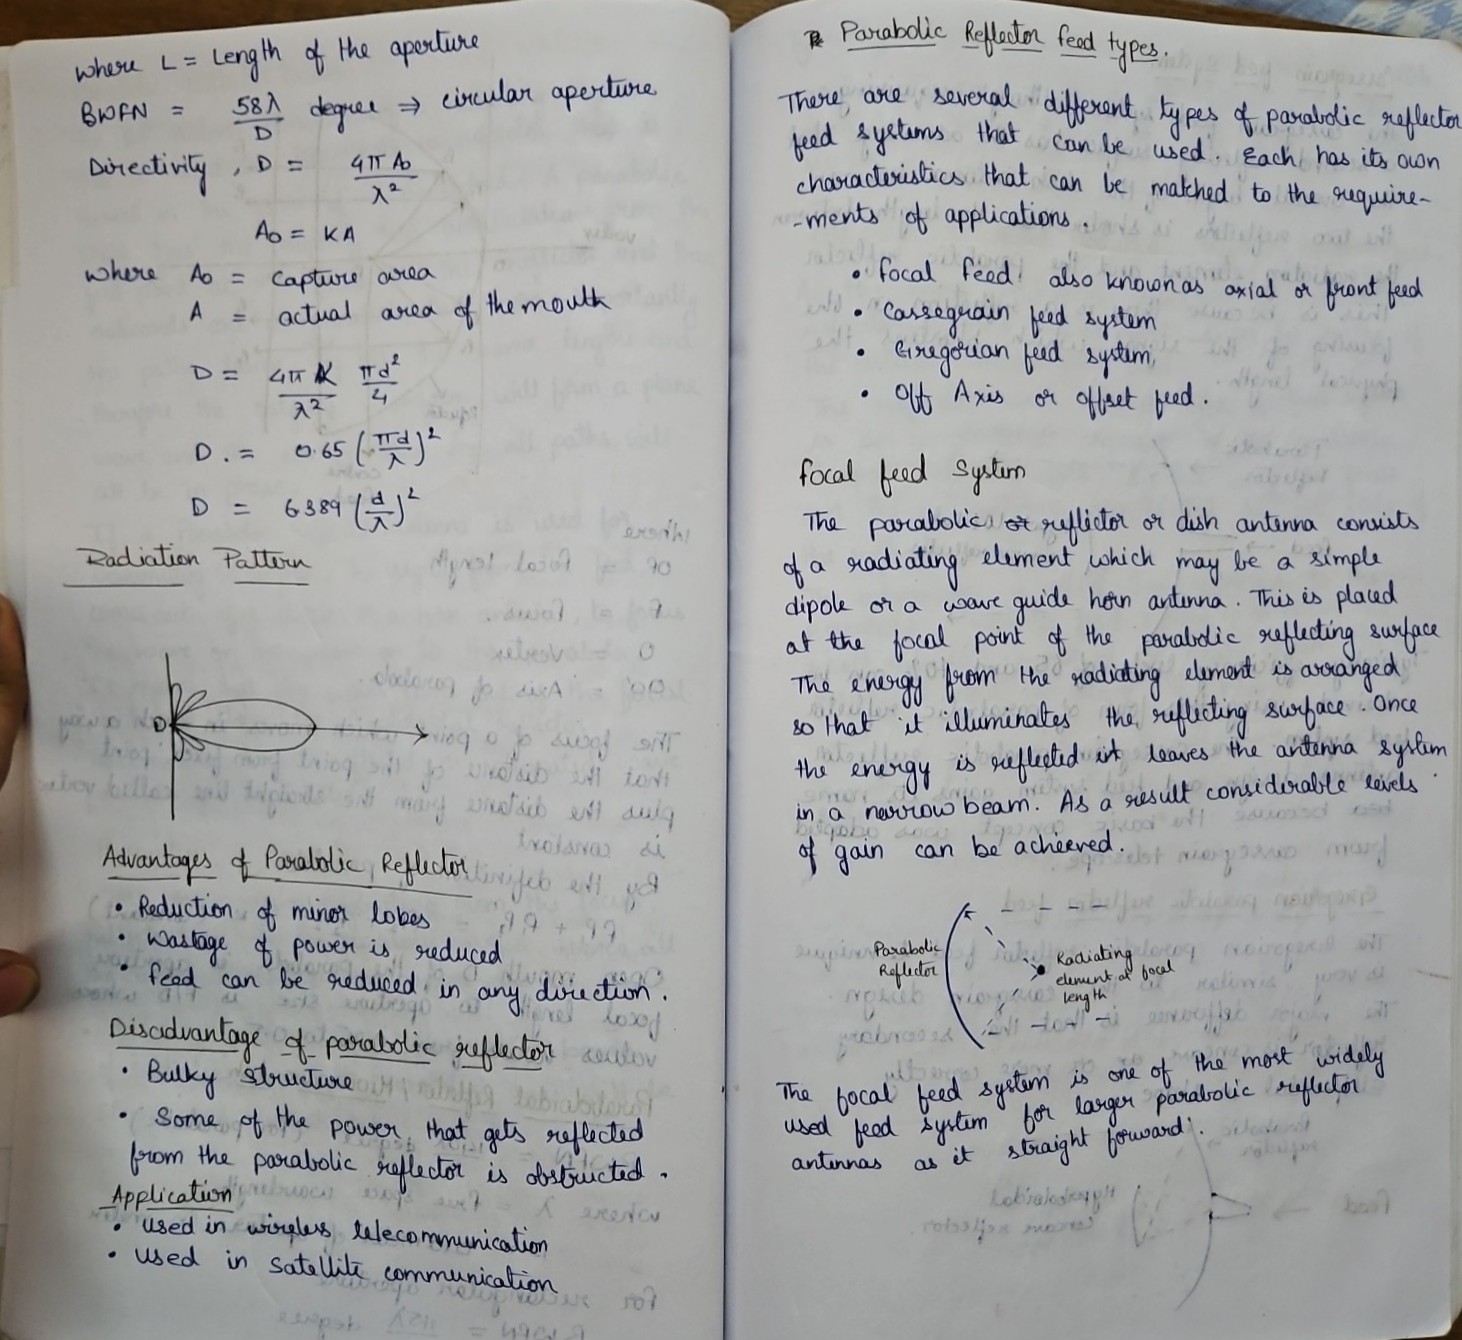 where L = Length of the aperture
BWFN = 58λ/D degree ⇒ circular aperture
Directivity, D = 4π A₀/λ²
A₀ = KA
where A₀ = capture area
A = actual area of the mouth
D = 4π K/λ² πd²/4
D. = 0.65 (πd/λ)²
D = 6389 (d/λ)²
Radiation Pattern
D
Advantages of Parabolic Reflector
• Reduction of minor lobes
• Wastage of power is reduced
• feed can be reduced in any direction.
Disadvantage of parabolic reflector
• Bulky structure
• Some of the power that gets reflected
from the parabolic reflector is obstructed.
Application
• used in wireless telecommunication
• used in satellite communication
Parabolic Reflector feed types.
There are several different types of parabolic reflector
feed systems that can be used. Each has its own
characteristics that can be matched to the require-
-ments of applications.
• focal feed also known as axial or front feed
• Cassegrain feed system
• Gregorian feed system,
• Off Axis or offset feed.
focal feed System
The parabolic or reflictor or dish antenna consists
of a radiating element which may be a simple
dipole or a wave guide horn antenna. This is placed
at the focal point of the parabolic reflecting surface
The energy from the radiating element is arranged
so that it illuminates the reflecting surface. Once
the energy is reflected it leaves the antenna system
in a narrow beam. As a result considerable levels
of gain can be achieved.
Parabolic
Reflector
Radiating
element at focal
length
The focal feed system is one of the most widely
used feed system for larger parabolic reflector
antennas as it straight forward.